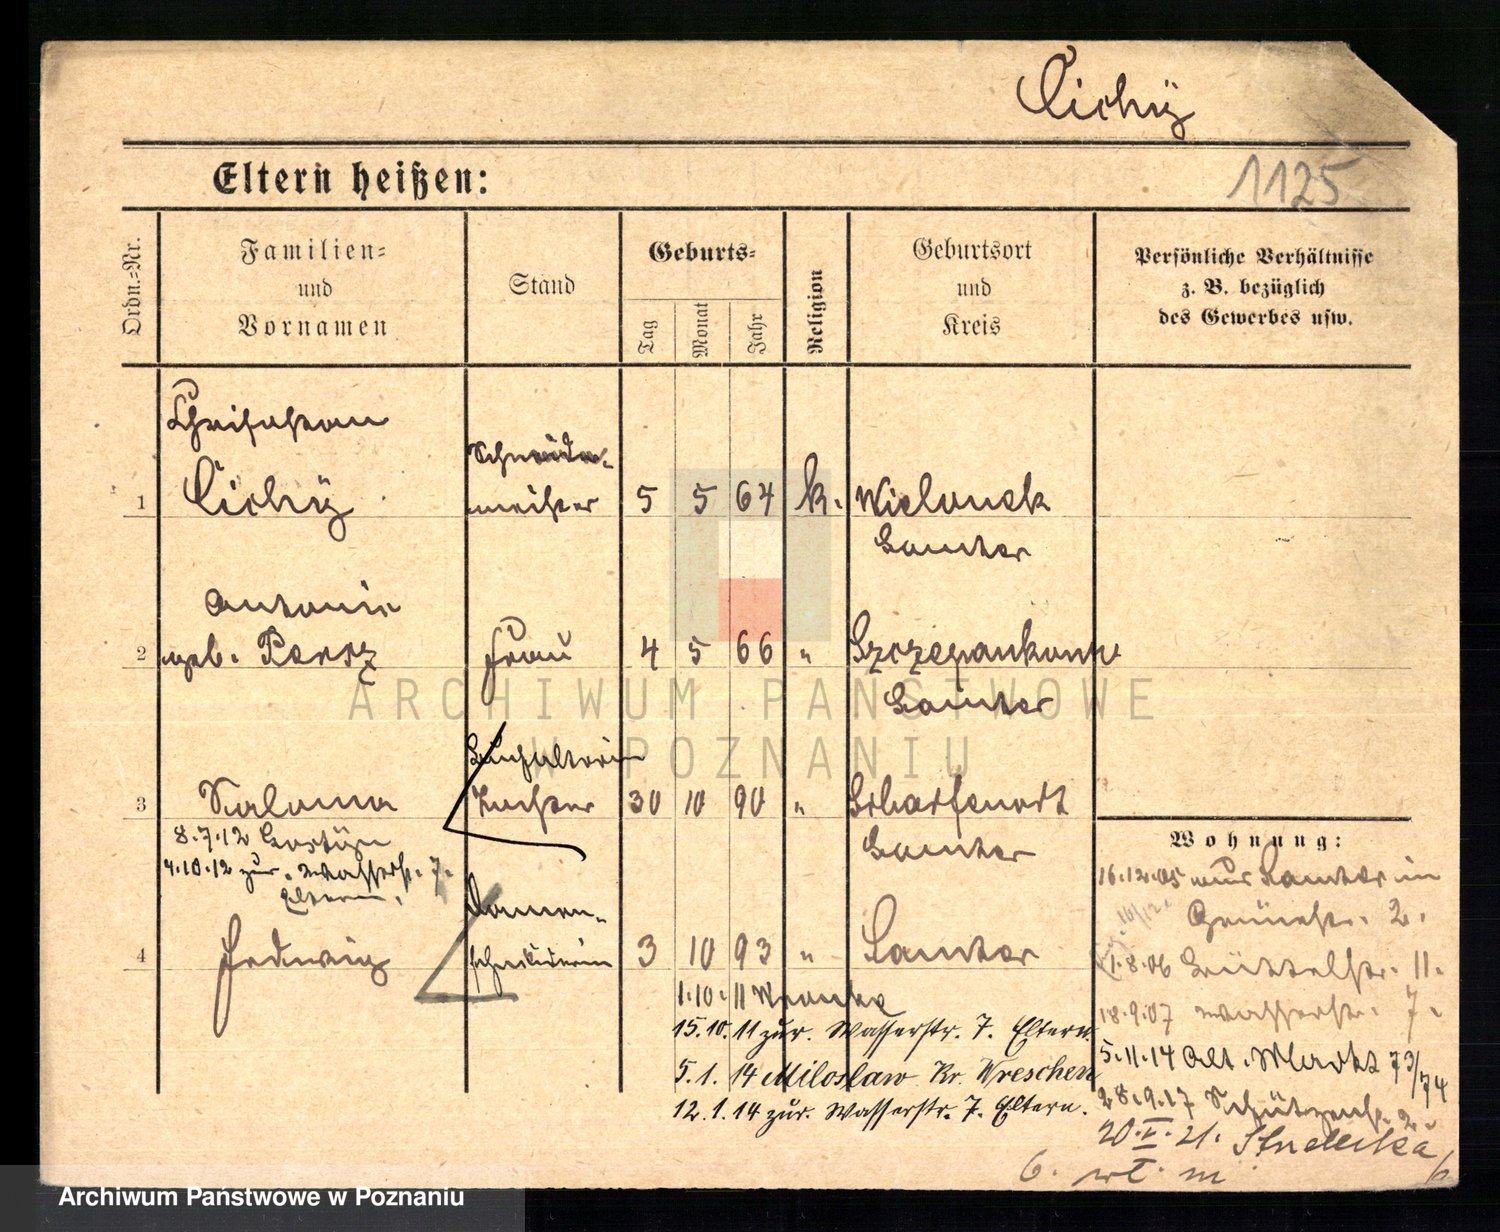 Cichy
1125
Eltern heißen:
Ordn.=Nr.
Familien=
und
Vornamen
Stand
Geburts=
Tag
Monat
Jahr
Religion
Geburtsort
und
Kreis
Persönliche Verhältnisse
z. B. bezüglich
des Gewerbes usw.
Chrisostom
Schneider-
1 Cichÿ meister 5 5 64 k. Wielonek
Samter
Antonie
2 geb. Piersz Frau 4 5 66 " Szczepankowo
Samter
Buchhalterin
3 Saloma Tochter 30 10 90 " Scharfenort
Samter
8.7.12 Gostÿn
4.10.12 zur. Wasserstr. 7.
Eltern.
Damen-
4 Hedwig schneiderin 3 10 93 " Samter
1.10.11 Wronke
15.10.11 zur. Wasserstr. 7. Eltern.
5.1.14 Miloslaw Kr. Wreschen
12.1.14 zur. Wasserstr. 7. Eltern.
Wohnung:
16.12.05 aus Samter in
Grünestr. 2.
1.8.06 Büttelstr. 11.
18.9.07 Wasserstr. 7.
5.11.14 Alt. Markt 73/74
28.9.17 Schützenstr. 2
20.V.21. Strzelecka
6. m
ARCHIWUM PAŃSTWOWE
W POZNANIU
Archiwum Państwowe w Poznaniu